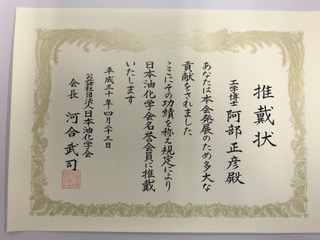 推戴状
工学博士 阿部正彦殿
あなたは本会発展のため多大な
貢献をされました
ここにその功績を称え規定により
日本油化学会名誉会員に推戴
いたします
平成三十年四月二十三日
公益社団法人日本油化学会
会長 河合武司